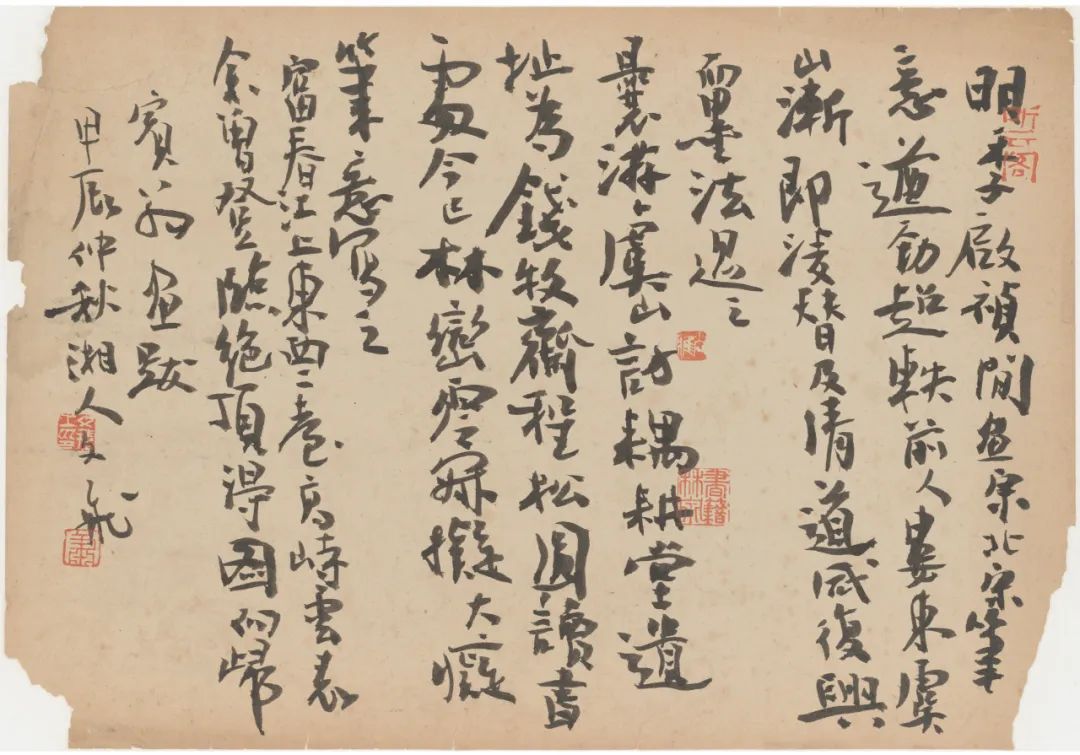 明季啟禎間畫宗北宋筆
意遒勁超軼前人婁東虞
山漸即凌替及清道咸復興
而墨法過之
曩游虞山訪耦耕堂遺
址為錢牧齋程松圓讀書
處今已林巒零寂擬大癡
筆意寫之
富春江上東西二臺高峙雲表
余曾登臨絕頂得圖而歸
賓翁畫跋
甲辰仲秋湘人文飛